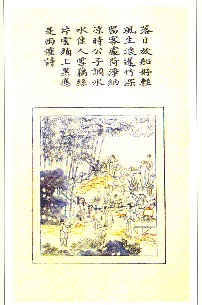 落日放船好輕
風生浪遲竹深
留客處荷淨納
凉時公子調冰
水佳人雪藕絲
片雲頭上黑應
是雨催詩